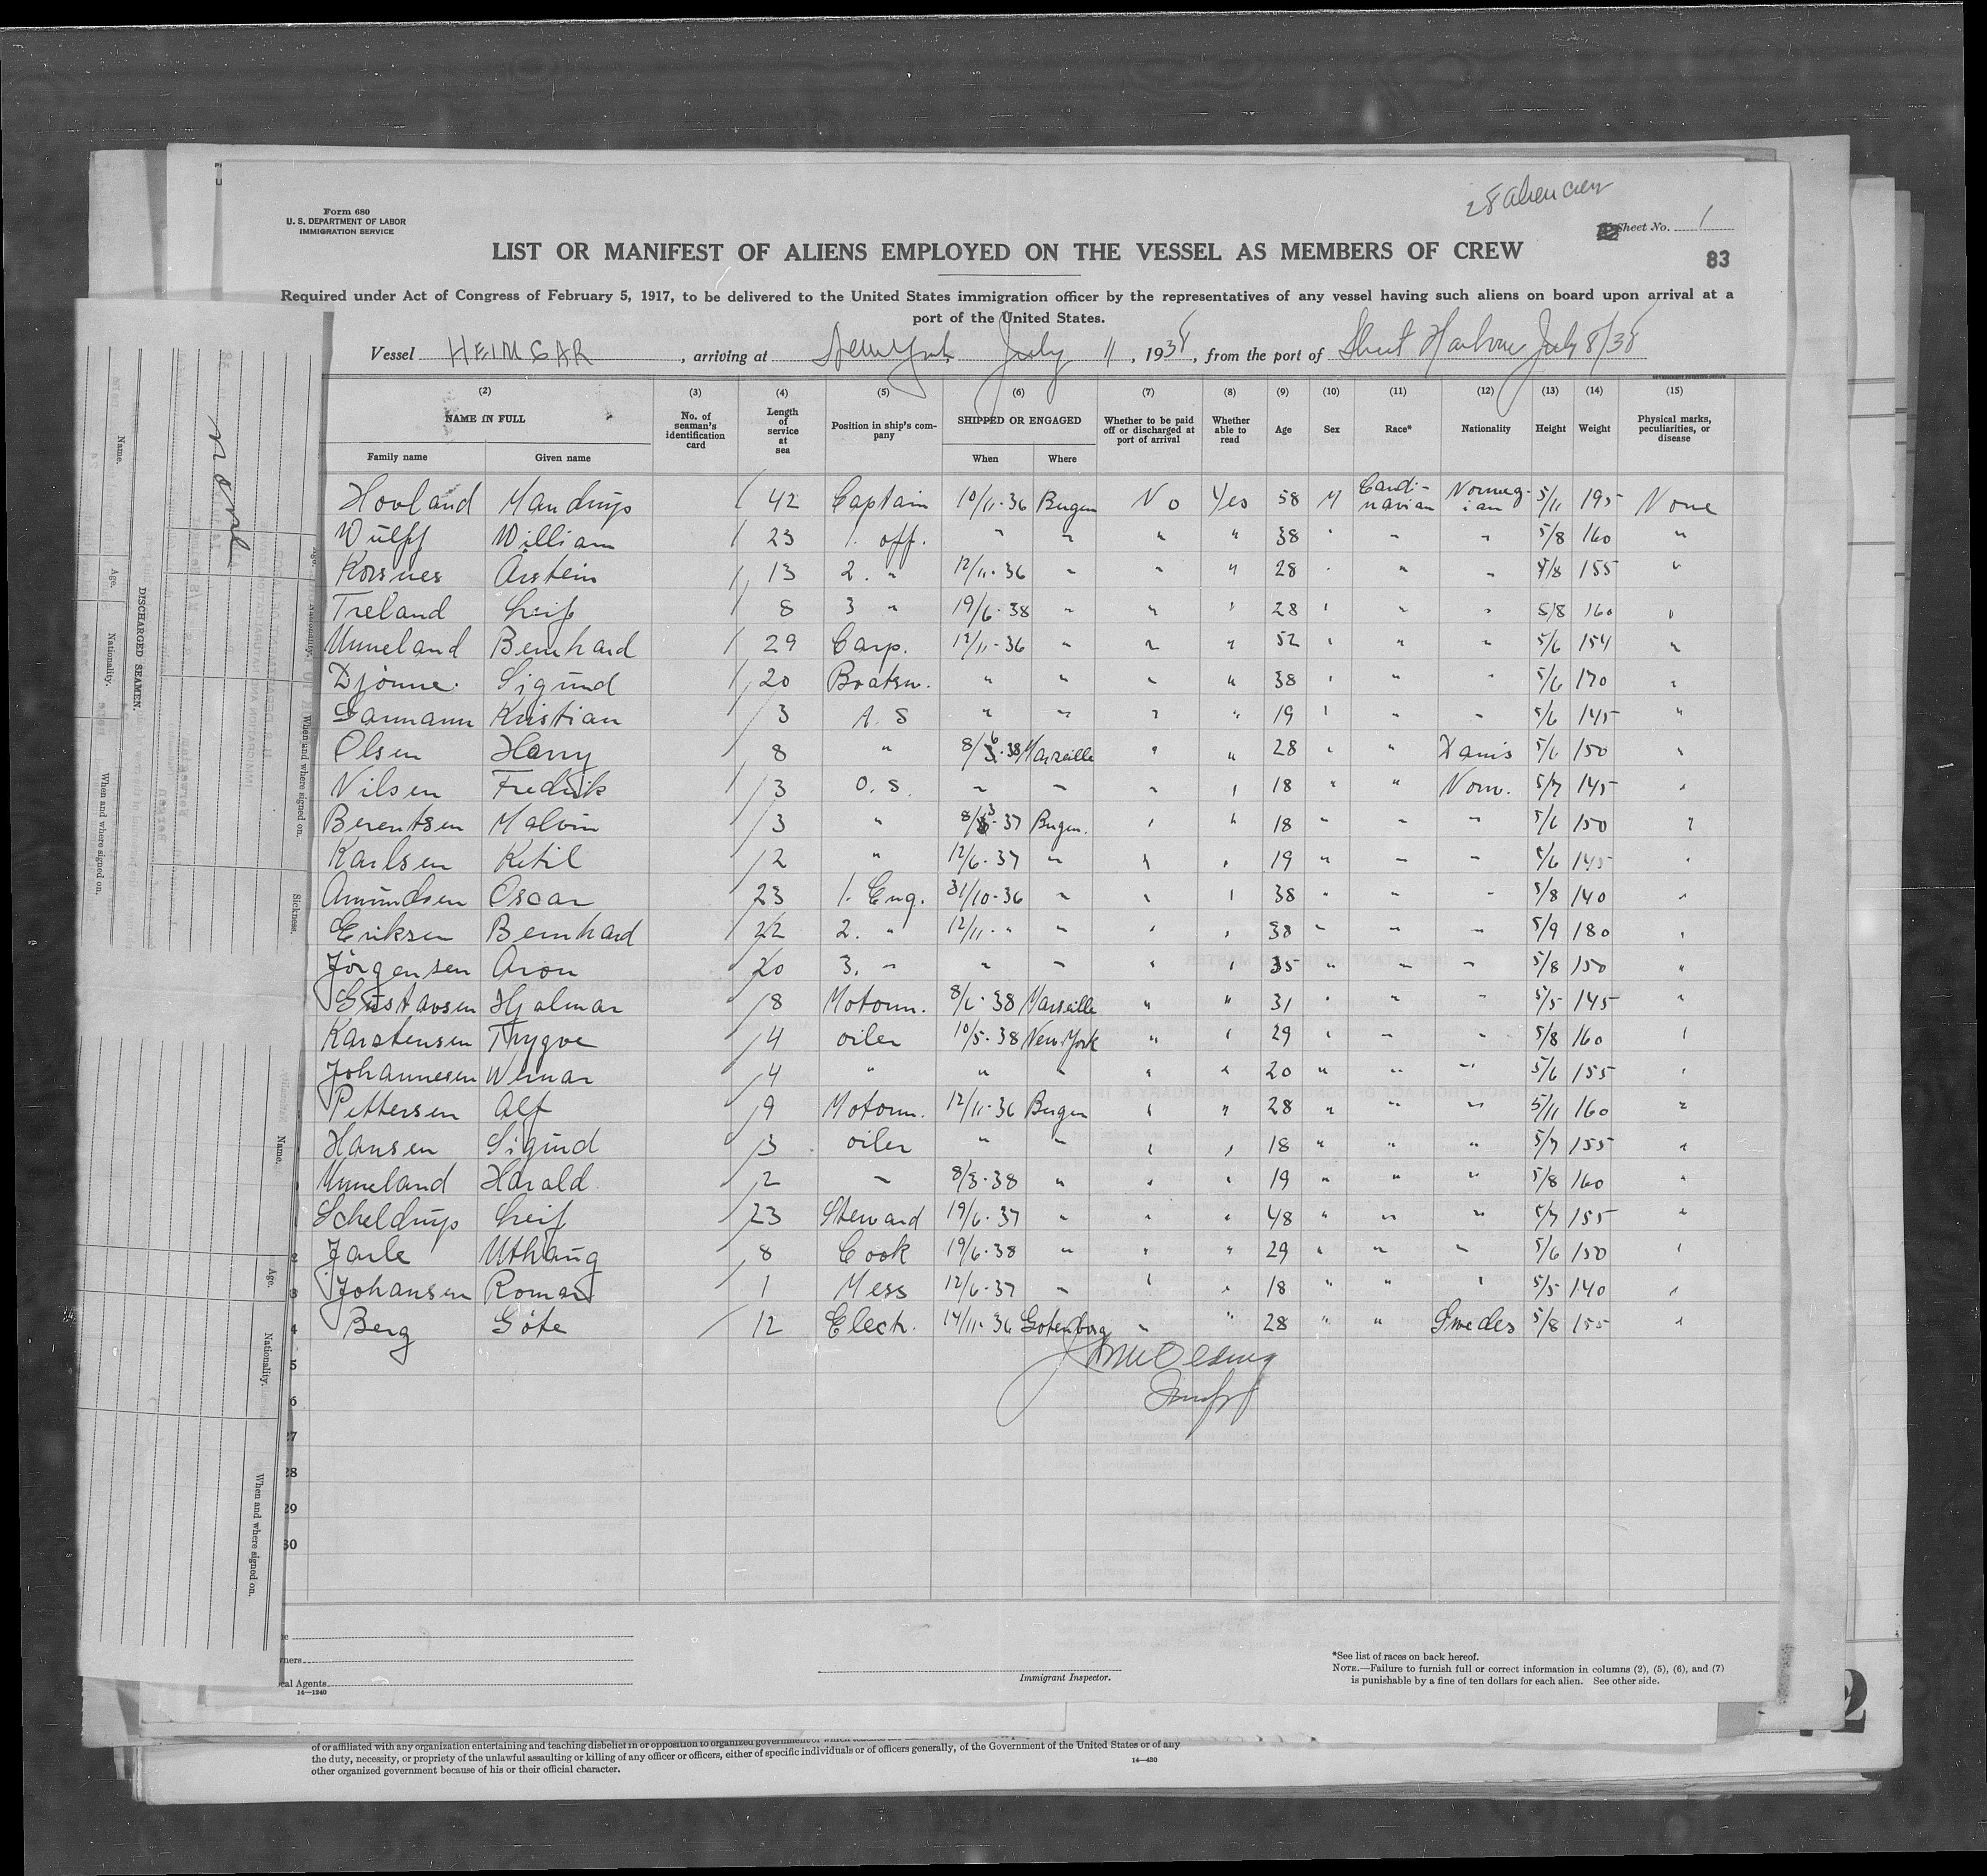 28 alien crew
Form 680
U. S. DEPARTMENT OF LABOR
IMMIGRATION SERVICE
Sheet No. 1
LIST OR MANIFEST OF ALIENS EMPLOYED ON THE VESSEL AS MEMBERS OF CREW
83
Required under Act of Congress of February 5, 1917, to be delivered to the United States immigration officer by the representatives of any vessel having such aliens on board upon arrival at a
port of the United States.
Vessel HEIMGAR, arriving at New York July 11, 1938, from the port of Sheet Harbour July 8/38
(2) (3) (4) (5) (6) (7) (8) (9) (10) (11) (12) (13) (14) (15)
NAME IN FULL No. of seaman's identification card Length of service at sea Position in ship's company SHIPPED OR ENGAGED Whether to be paid off or discharged at port of arrival Whether able to read Age Sex Race* Nationality Height Weight Physical marks, peculiarities, or disease
Family name Given name When Where
Hovland Mandrup 42 Captain 10/11-36 Bergen No Yes 58 M Candi-navian Norweg-ian 5/11 195 None
Wulff William 23 1. off. " " " " 38 " " " 5/8 160 "
Korsnes Arstein 13 2. " 12/11-36 " " " 28 " " " 5/8 155 "
Treland Leif 8 3 " 19/6-38 " " " 28 " " " 5/8 160 "
Unneland Bernhard 29 Carp. 12/11-36 " " " 52 " " " 5/6 154 "
Djønne Sigurd 20 Boatsw. " " " " 38 " " " 5/6 170 "
Garmann Kristian 3 A. S " " " " 19 " " " 5/6 145 "
Olsen Harry 8 " 8/6-38 Marseille " " 28 " " Danis 5/6 150 "
Nilsen Fredrik 3 O. S. " " " " 18 " " Norw. 5/7 145 "
Berentsen Malvin 3 " 8/3-37 Bergen. " " 18 " " " 5/6 150 "
Karlsen Ketil 2 " 12/6-37 " " " 19 " " " 5/6 145 "
Amundsen Oscar 23 1. Eng. 31/10-36 " " " 38 " " " 5/8 140 "
Eriksen Bernhard 22 2. " 12/11-" " " " 38 " " " 5/9 180 "
Jörgensen Aron 20 3. " " " " " 35 " " " 5/8 150 "
Gustavsen Hjalmar 8 Motorm. 8/6-38 Marseille " " 31 " " " 5/5 145 "
Karstensen Trygve 4 oiler 10/5-38 New York " " 29 " " " 5/8 160 "
Johannesen Wernar 4 " " " " " 20 " " " 5/6 155 "
Pettersen Alf 9 Motorm. 12/11-36 Bergen " " 28 " " " 5/11 160 "
Hansen Sigurd 3 oiler " " " " 18 " " " 5/7 155 "
Unneland Harald 2 " 8/3-38 " " " 19 " " " 5/8 160 "
Scheldrup Leif 23 Steward 19/6-37 " " " 48 " " " 5/7 155 "
Jarle Uthaug 8 Cook 19/6-38 " " " 29 " " " 5/6 150 "
Johansen Roman 1 Mess 12/6-37 " " " 18 " " " 5/5 140 "
Berg Göte 12 Electr. 14/11-36 Gotenborg " " 28 " " Swedes 5/8 155 "
28
29
30
Immigrant Inspector.
*See list of races on back hereof.
NOTE.—Failure to furnish full or correct information in columns (2), (5), (6), and (7)
is punishable by a fine of ten dollars for each alien. See other side.
14—1240
the duty, necessity, or propriety of the unlawful assaulting or killing of any officer or officers, either of specific individuals or of officers generally, of the Government of the United States or of any
14—430
other organized government because of his or their official character.
DISCHARGED SEAMEN.
Name.
Age.
Nationality.
When and where signed on.
Sickness.
Name.
Age.
Nationality.
When and where signed on.